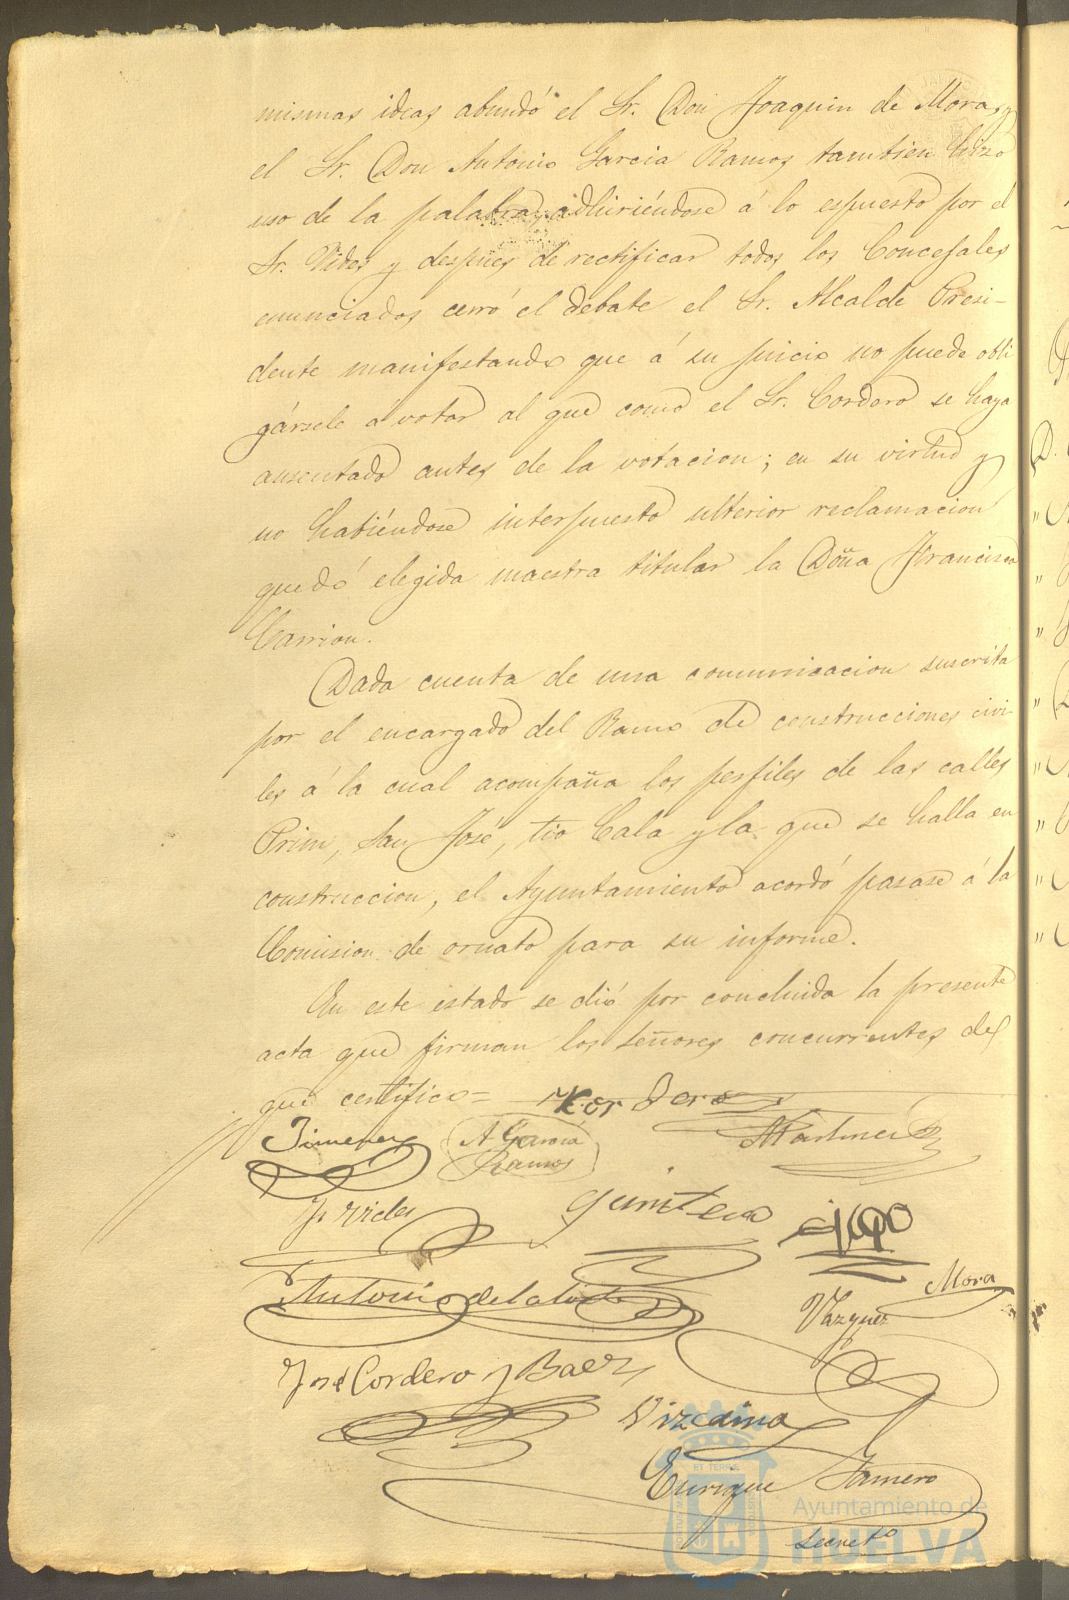 mismas ideas abundó el Sr. Don Joaquin de Mora, y
el Sr. Don Antonio Garcia Ramos tambien hizo
uso de la palabra adhiriéndose á lo espuesto por el
Sr. Vides y despues de rectificar todos los Concejales
enunciados cerró el debate el Sr. Alcalde Presi-
dente manifestando que á su juicio no puede obli
gársele á votar al que como el Sr. Cordero se haya
ausentado antes de la votacion; en su virtud y
no habiéndose interpuesto ulterior reclamacion
quedó elegida maestra titular la Doña Francisca
Carrion.
Dada cuenta de una comunicacion suscrita
por el encargado del Ramo de construcciones civi
les á la cual acompaña los perfiles de las calles
Prim, San José, tio Cala y la que se halla en
construccion, el Ayuntamiento acordó pasase á la
Comision de ornato para su informe.
En este estado se dió por concluida la presente
acta que firman los señores concurrentes de
que certifico=
Jimenez A Garcia Martinez
Ramos
J. Vides Quintero
Mora
Antonio de la
Vazquez
José Cordero y Baez
Vizcaino
Enrique
Secreto
Ayuntamiento de
HUELVA